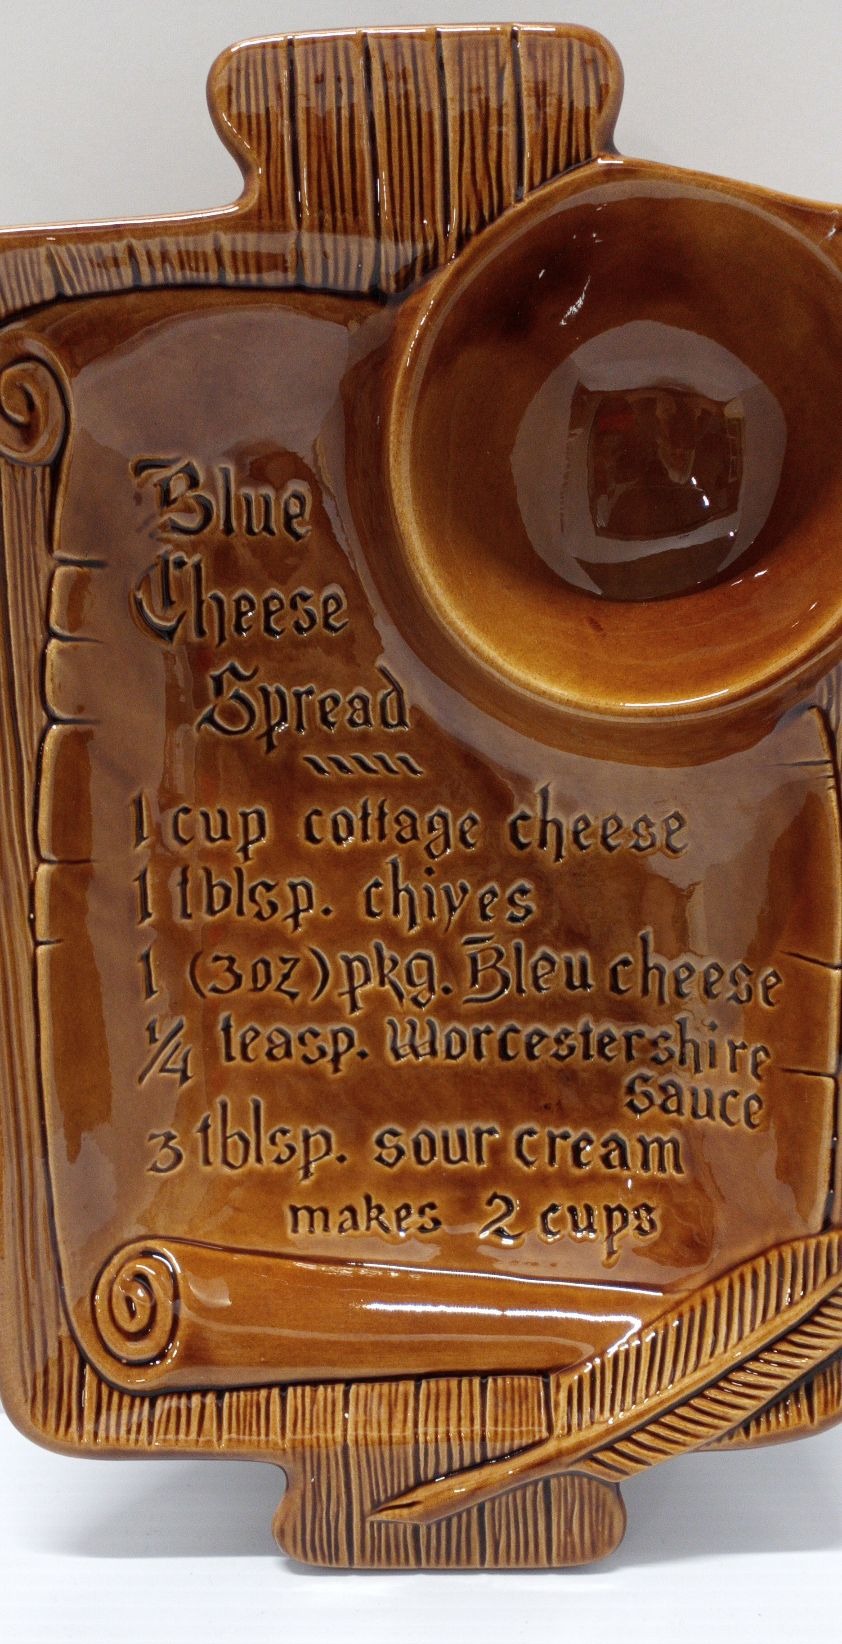 Blue
Cheese
Spread
1 cup cottage cheese
1 tblsp. chives
1 (3oz) pkg. Bleu cheese
1/4 teasp. Worcestershire
Sauce
3 tblsp. sour cream
makes 2 cups